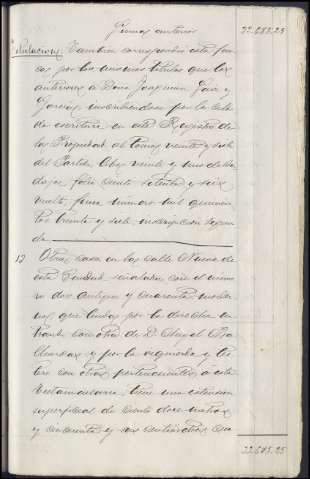 Sumas anterior 32.688,25
Titulacion. Tambien corresponde esta fin
ca, por los mismos titulos que las
anteriores a Don Joaquin
Garcia, inscribiendose por la
da escritura en el Registro de
la Propiedad al tomo veinte y siete
del Partido, libro veinte y uno de
folio ciento setenta y seis
vuelto, finca numero mil quinien
tos treinta y siete, inscripcion segun
da
13 Otra casa en la calle Nueva de
esta Ciudad señalada con el nume
ro dos antiguo y cuarenta moder
no, que linda por la derecha en
trando con otra de D. Angel
y por la izquierda y tes
tero con otras pertenecientes a esta
testamentaria; tiene una extension
superficial de ciento doce metros
y cincuenta y seis centimetros cua
32.688,25